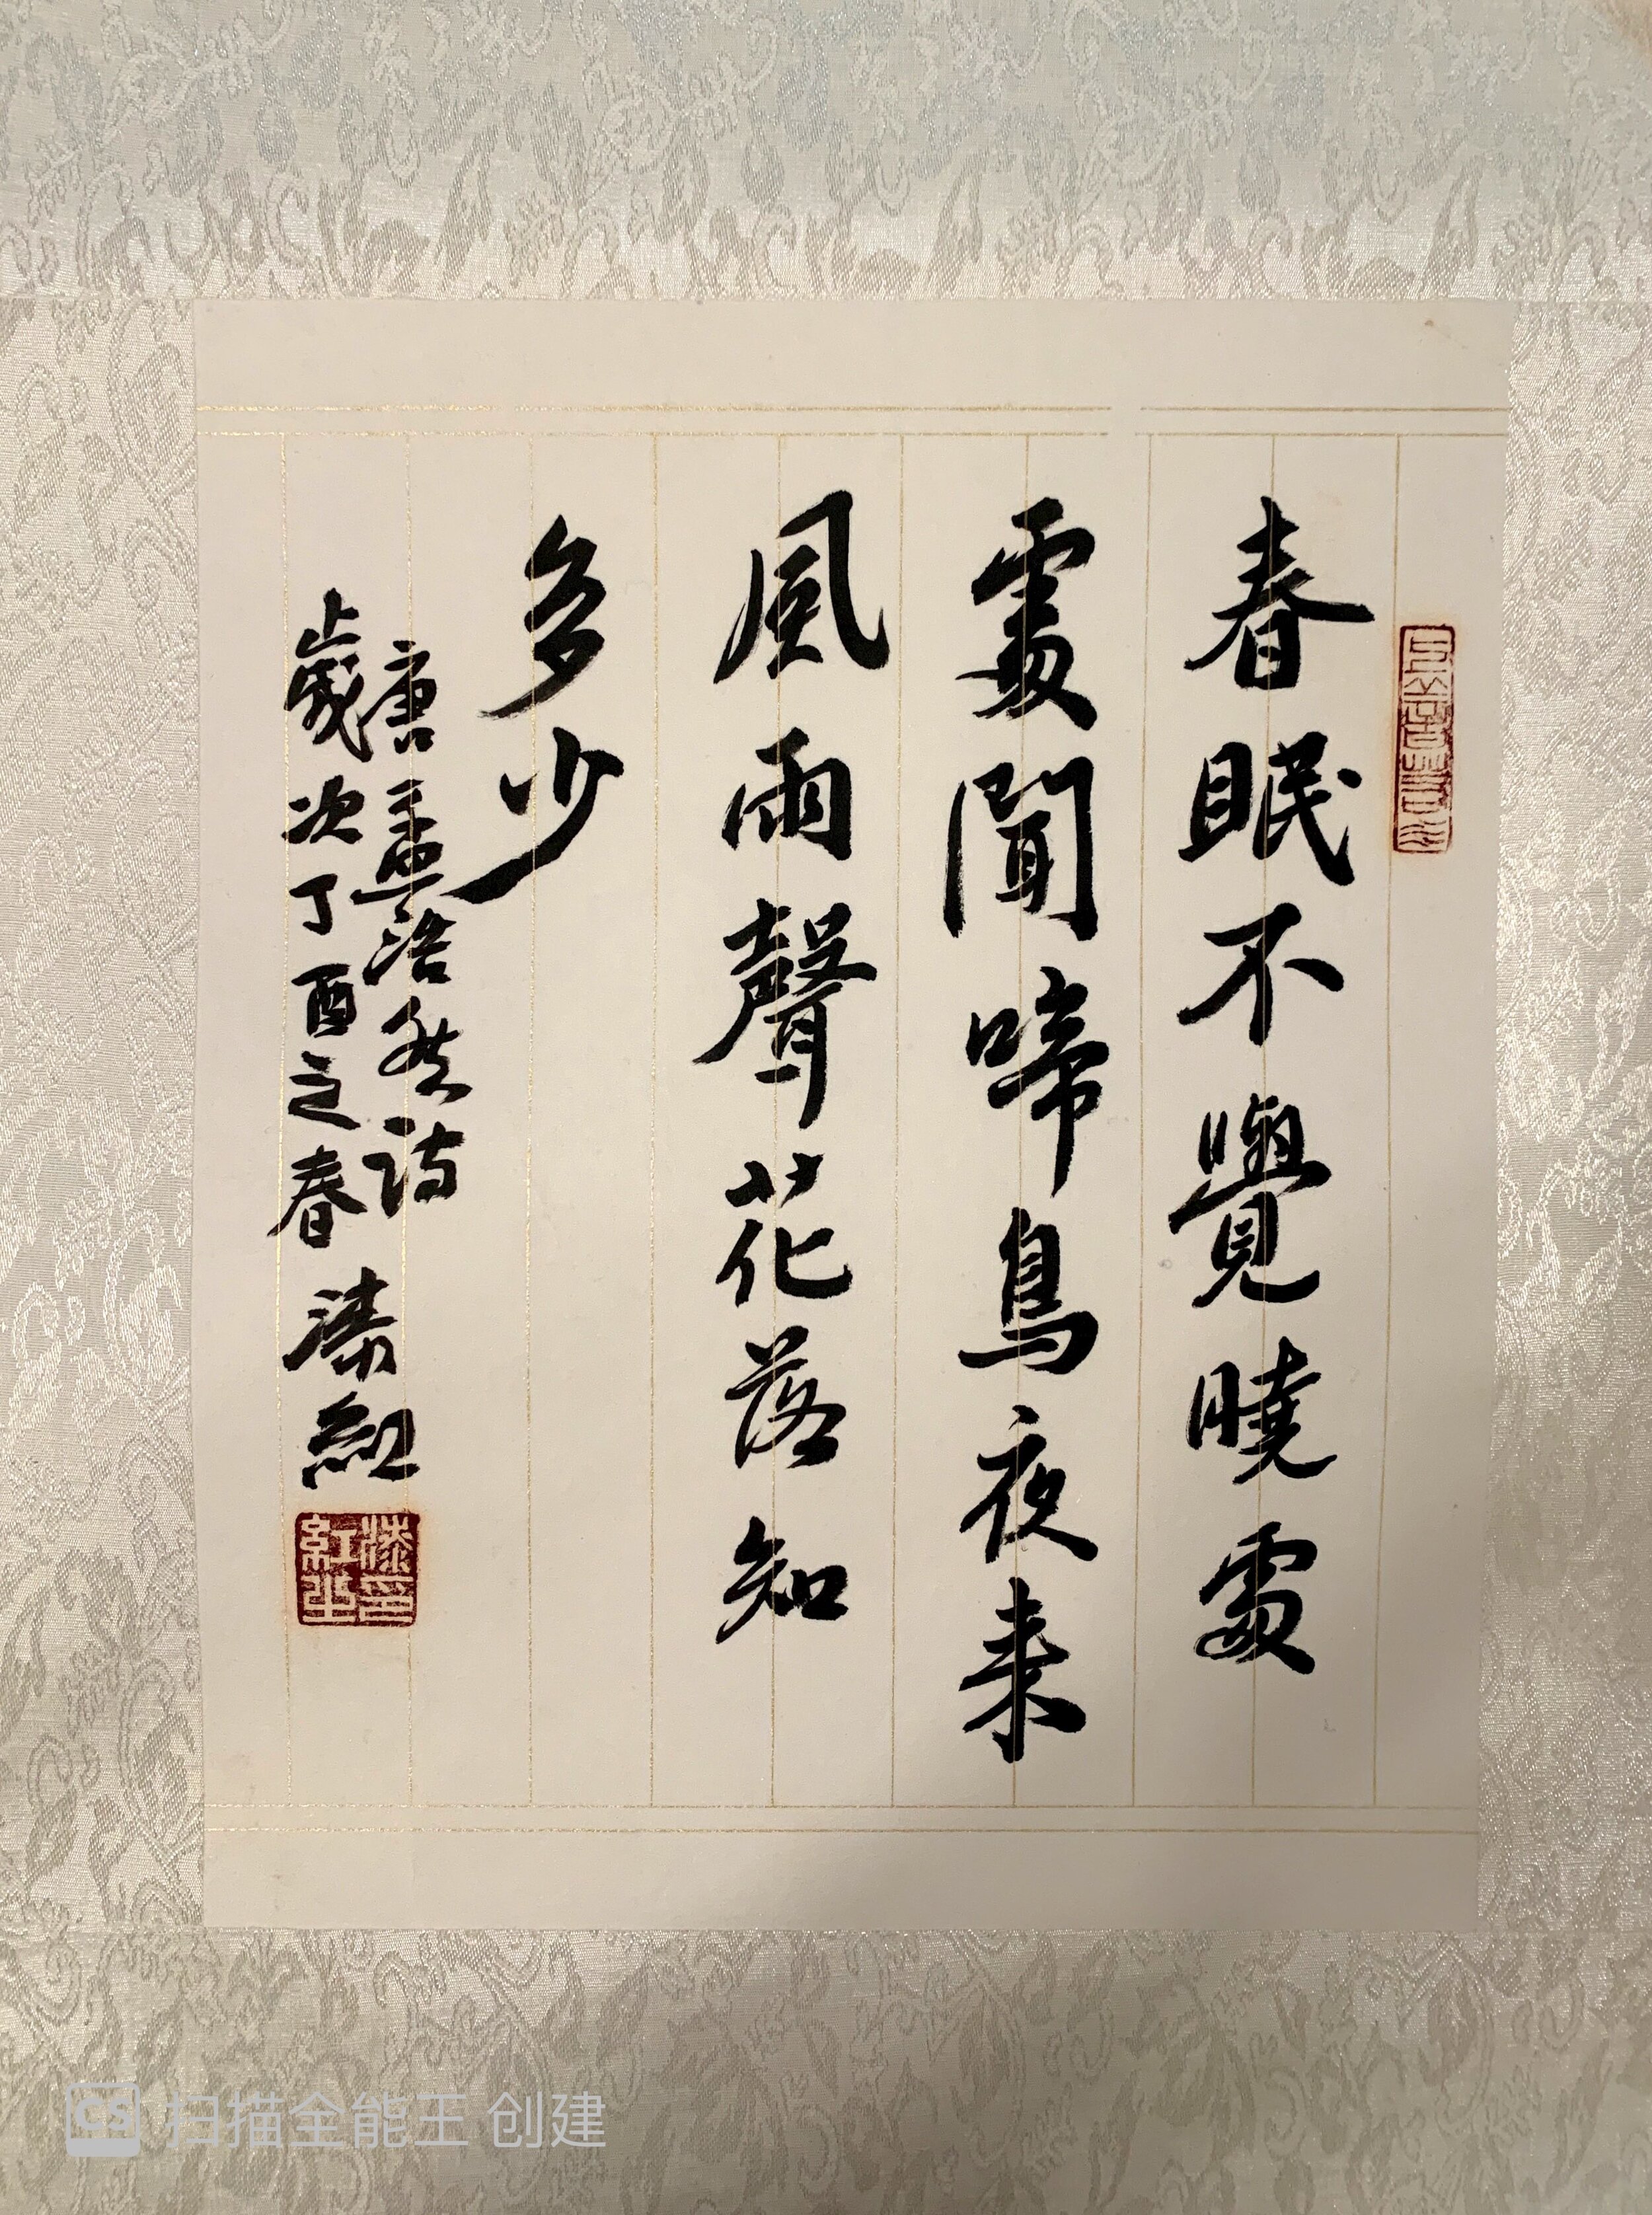 春眠不覺曉處
處聞啼鳥夜来
風雨聲花落知
多少
唐孟浩然詩
歲次丁酉之春 漆紅
漆紅之印
CS 扫描全能王 创建